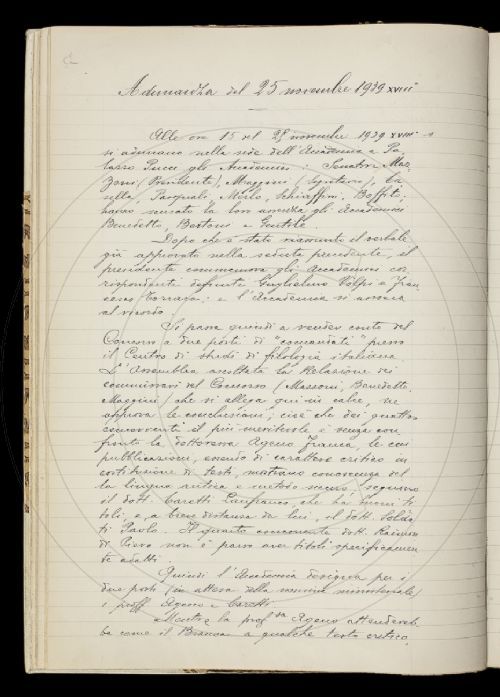 Adunanza del 25 novembre 1939 XVIII
Alle ore 15 del 25 novembre 1939 XVIII
si adunano nella sede dell'Accademia a Pa-
lazzo Pucci gli Accademici: Senatore Maz-
zoni (Presidente), Maggini (Segretario), Ca-
sella, Pasquali, Merlo, Schiaffini, Boffito;
hanno scusato la loro assenza gli Accademici
Benedetto, Bertoni e Gentile.
Dopo che è stato riassunto il verbale
già approvato nella seduta precedente, il
presidente commemora gli Accademici cor-
rispondenti defunti Guglielmo Volpi e Fran-
cesco Torraca: e l'Accademia si associa
al ricordo.
Si passa quindi a render conto del
Concorso a due posti di "comandati" presso
il Centro di studi di filologia italiana.
L'Assemblea, ascoltata la Relazione dei
commissari del Concorso (Mazzoni, Benedetto,
Maggini) che si allega qui in calce, ne
approva le conclusioni; cioè che dei quattro
concorrenti il più meritevole è senza con-
fronto la dottoressa Ageno Franca, le cui
pubblicazioni, essendo di carattere critico in
costituzione di testi, mostrano conoscenza del-
la lingua antica e metodo sicuro; seguono
il dott. Caretti Lanfranco, che ha buoni ti-
toli, e, a breve distanza da lui, il dott.
ti Paolo. Il quarto concorrente dott.
di Piero non è parso aver titoli specificamen-
te adatti.
Quindi l'Accademia designa per i
due posti (in attesa della nomina ministeriale)
i proff. Ageno e Caretti.
Mentre la prof.ssa Ageno attendereb-
be come il Branca a qualche testo critico,